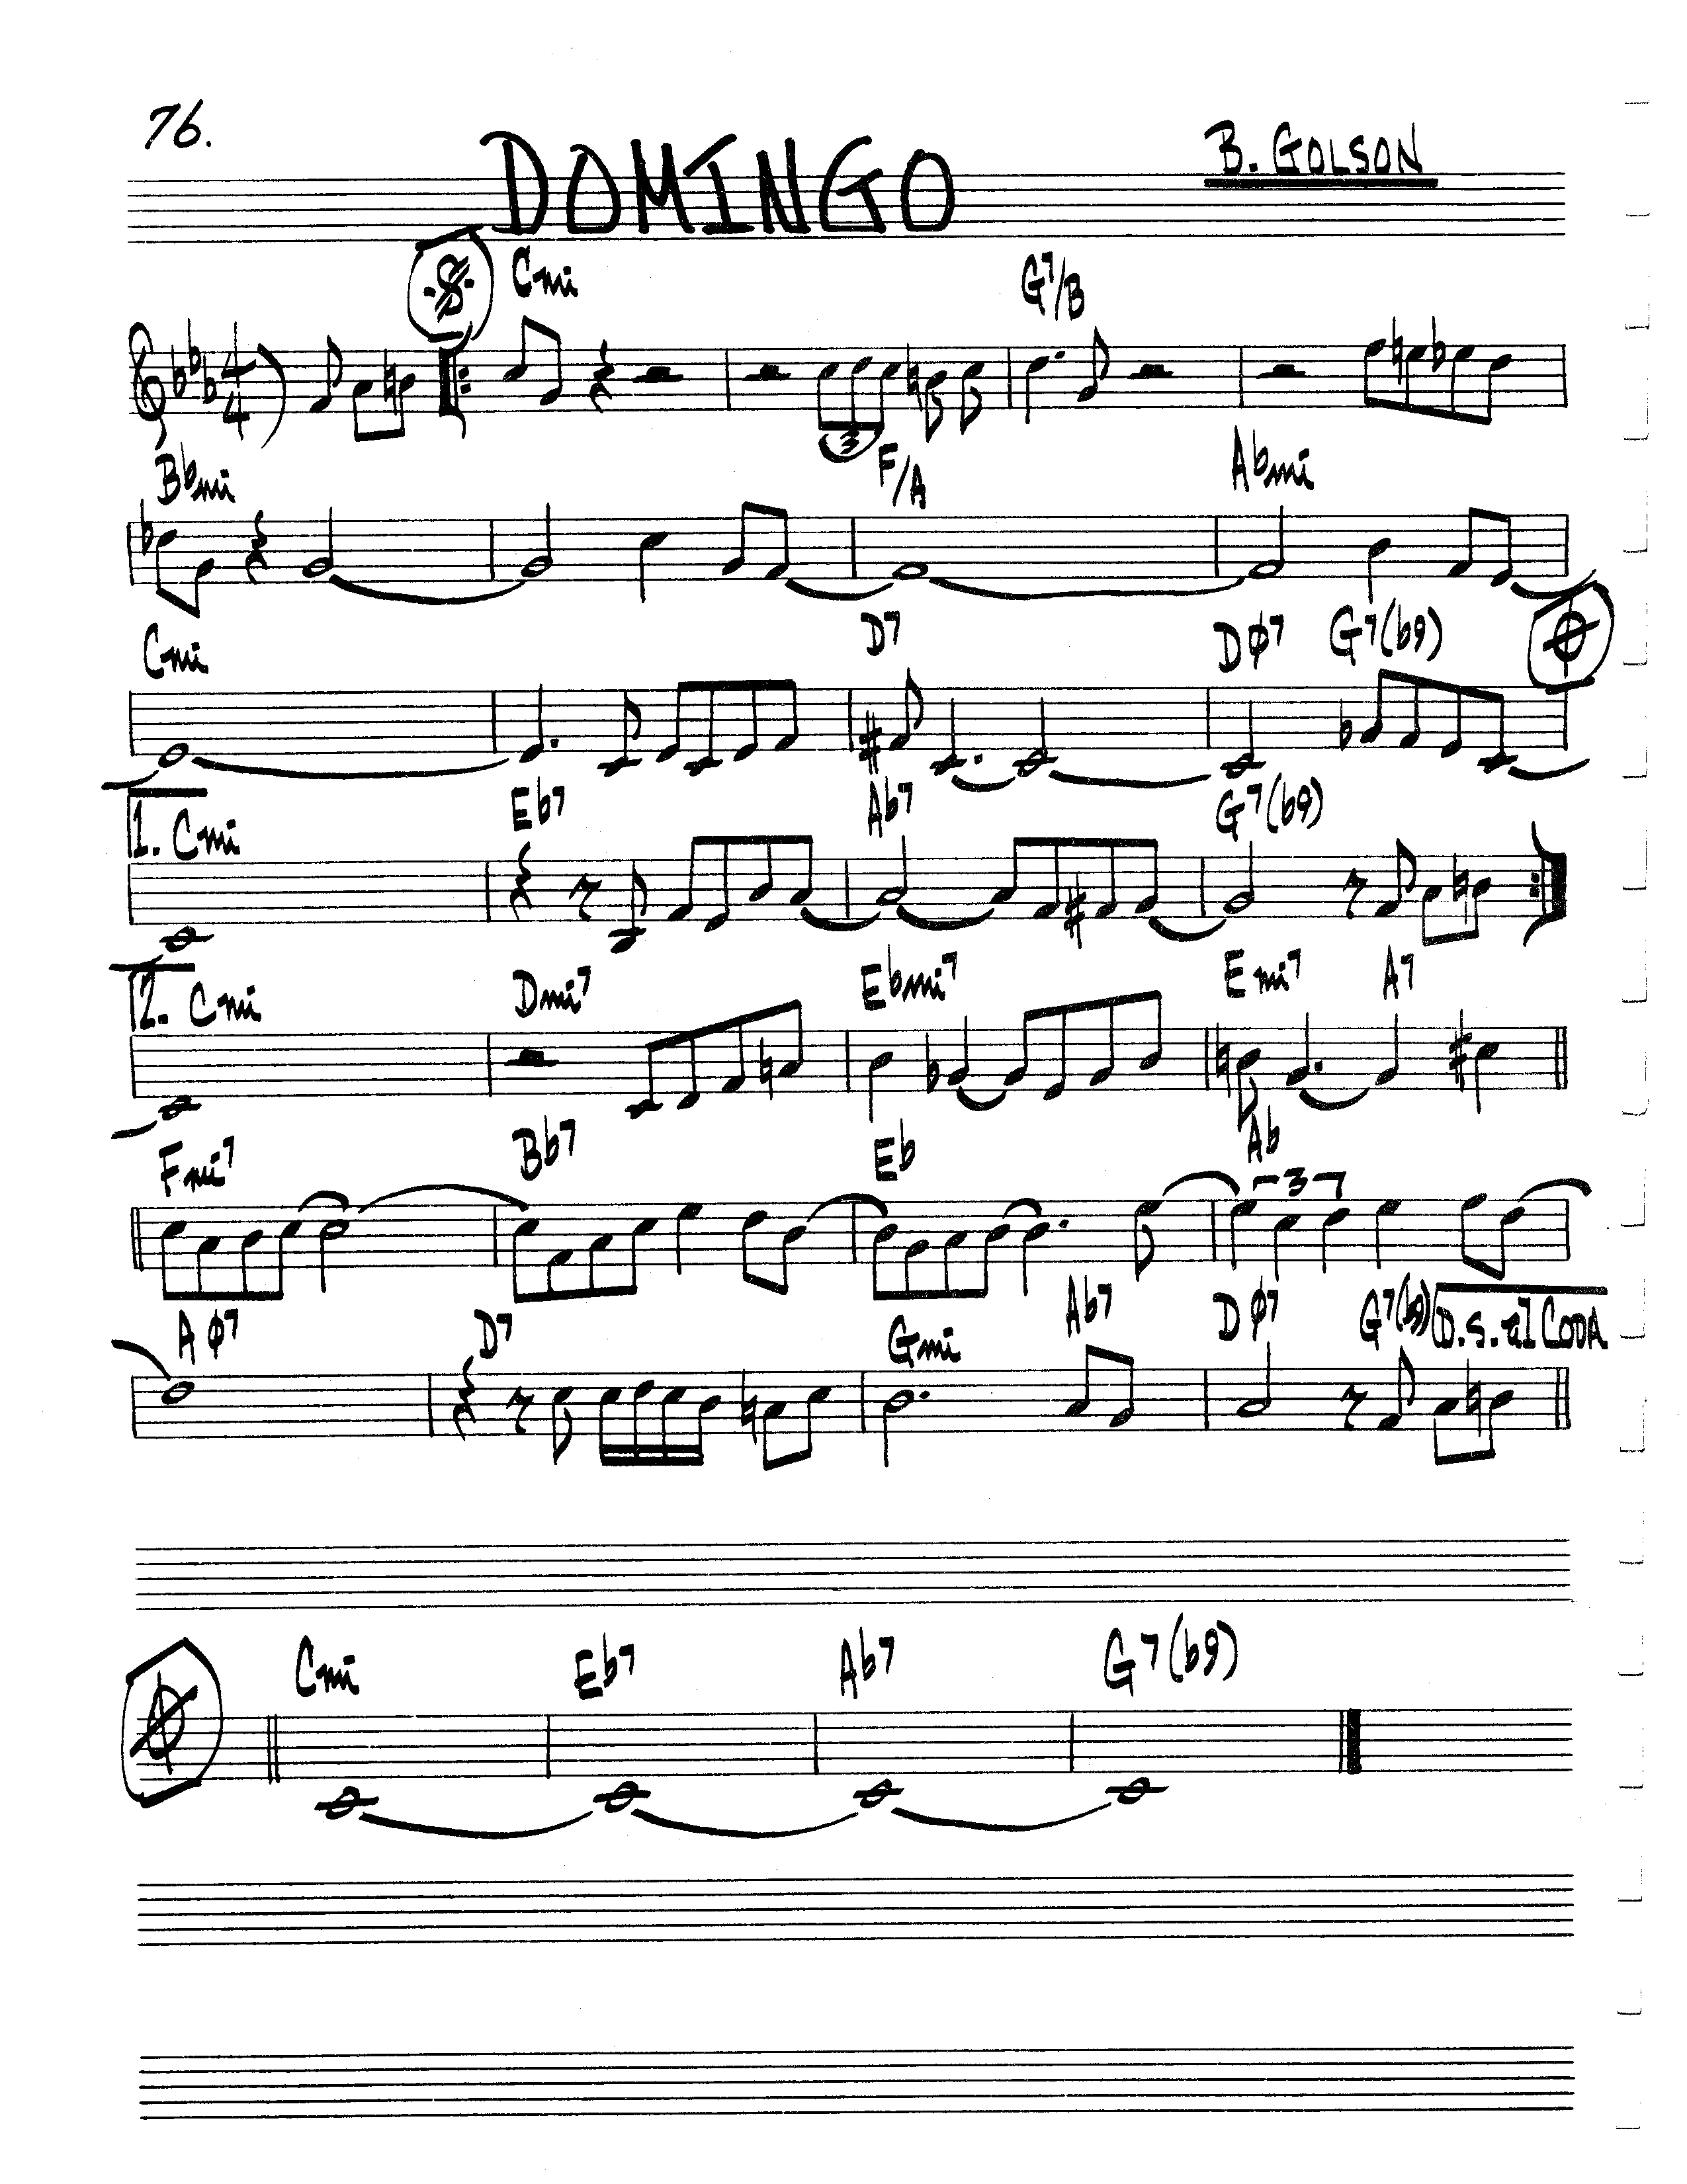 76.
DOMINGO
B. GOLSON
Cmi G7/B
4/4
3
Bbmi F/A Abmi
Cmi D7 DØ7 G7(b9)
1. Cmi Eb7 Ab7 G7(b9)
2. Cmi Dmi7 Ebmi7 Emi7 A7
Fmi7 Bb7 Eb Ab
3
AØ7 D7 Gmi Ab7 DØ7 G7(b9) D.S. al CODA
Cmi Eb7 Ab7 G7(b9)